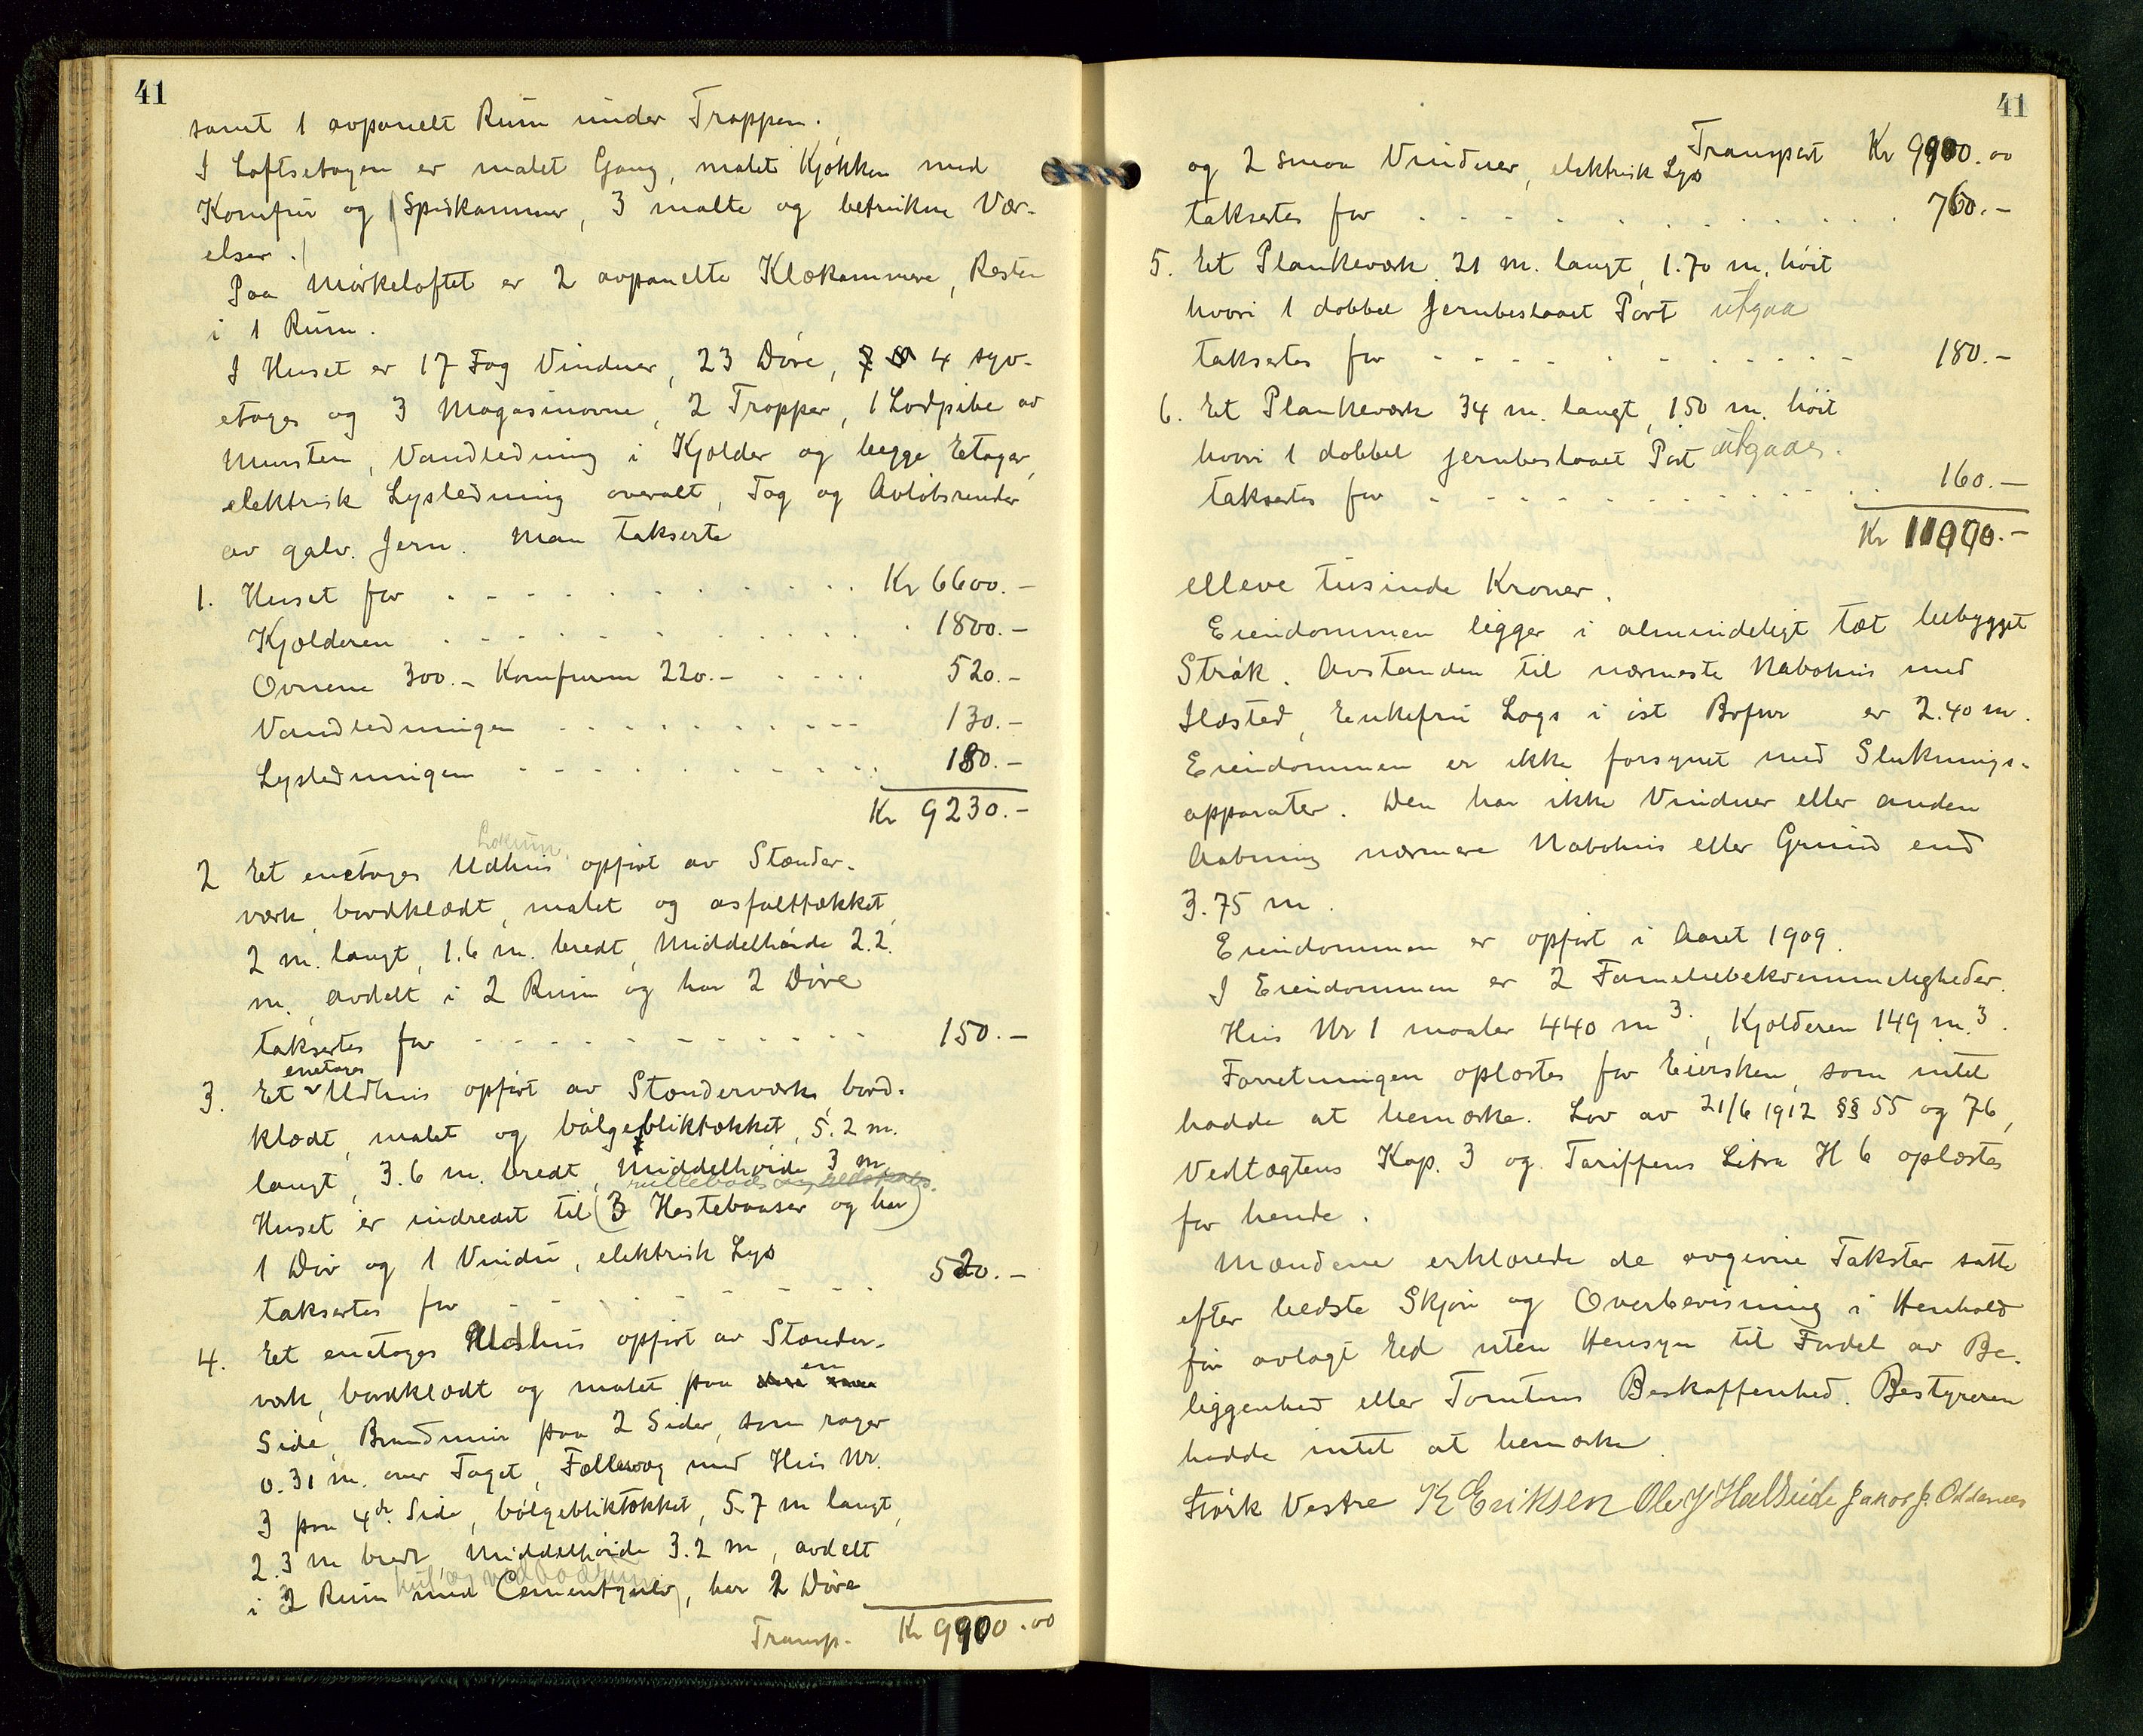 41
samt 1 avpanelt Rum under Trappen.
I Loftsetagen er malet Gang, malet Kjøkken med
Komfur og (Spiskammer, 3 malte og betrukne Vær-
elser.)
Paa Mørkeloftet er 2 avpanelte Klækammere, Resten
i 1 Rum.
I Huset er 17 Fag Vinduer, 23 Døre, 4 syv-
etages og 3 Magasinovne, 2 Trapper, 1 Lodpibe av
Mursten, Vandledning i Kjælder og begge Etager,
elektrisk Lysledning overalt, Tag og Avløbsrender
av galv. Jern. Man takserte
1. Huset for Kr 6600.-
Kjælderen 1800.-
Ovnene 300.- Komfuren 220.- 520.-
Vandledningen 130.-
Lysledningen 180.-
Kr 9230.-
Lokum
2 Et enetages Udhus opført av Stænder-
værk, bordklædt, malet og asfalttækket,
2 m. langt, 1.6 m. bredt, Middelhøide 2.2.
m., avdelt i 2 Rum og har 2 Døre
taksertes for 150.-
enetages
3. Et Udhus opført av Stænderværk, bord-
klædt, malet og bølgebliktækket, 5.2 m.
langt, 3.6 m. bredt, Middelhøide 3 m.
Huset er indredet til (3 Hestebaaser og har)
1 Dør og 1 Vindu, elektrisk Lys
taksertes for 520.-
4. Et enetages Udhus opført av Stænder-
værk, bordklædt og malet paa en
Side, Brandmur paa 2 Sider, som rager
0.31 m. over Taget, Fællesvæg med Hus Nr.
3 paa 4de Side, bølgebliktækket, 5.7 m langt,
2.3 m bredt, Middelhøide 3.2 m, avdelt
i 2 Rum med Cementgulv, har 2 Døre
Transp. Kr 9900.00
41
Transport Kr 9900.00
og 2 smaa Vinduer, elektrisk Lys
taksertes for 760.-
5. Et Plankeværk 21 m. langt, 1.70 m. høit
hvori 1 dobbel jernbeslaaet Port utgaa
taksertes for 180.-
6. Et Plankeværk 34 m. langt, 1.50 m. høit
hvori 1 dobbel jernbeslaaet Port utgaar.
taksertes for 160.-
Kr 11000.-
elleve tusinde Kroner.
Eiendommen ligger i almindeligt tæt bebygget
Strøk. Avstanden til nærmeste Nabohus med
Ildsted, Enkefru Lags i øst Bofur er 2.40 m.
Eiendommen er ikke forsynet med Sluknings-
apparater. Den har ikke Vinduer eller anden
Aabning nærmere Nabohus eller Grund end
3.75 m.
Eiendommen er opført i Aaret 1909.
I Eiendommen er 2 Familiebekvemmeligheder.
Hus Nr 1 maaler 440 m3., Kjælderen 149 m.3.
Forretningen oplæstes for Eiersken, som intet
hadde at bemærke. Lov av 21/6 1912 §§ 55 og 76,
Vedtægtens Kap. 3 og Tariffens Litra H 6 oplæstes
for hende.
Mændene erklærede de avgivne Takster satte
efter bedste Skjøn og Overbevisning i Henhold
før avlagt Ed uten Hensyn til Fordel av Be-
liggenhed eller Tomtens Beskaffenhed. Bestyreren
hadde intet at bemærke.
Størk Vestre K Eriksen Ole J Halseide Jakob J. Oddenes